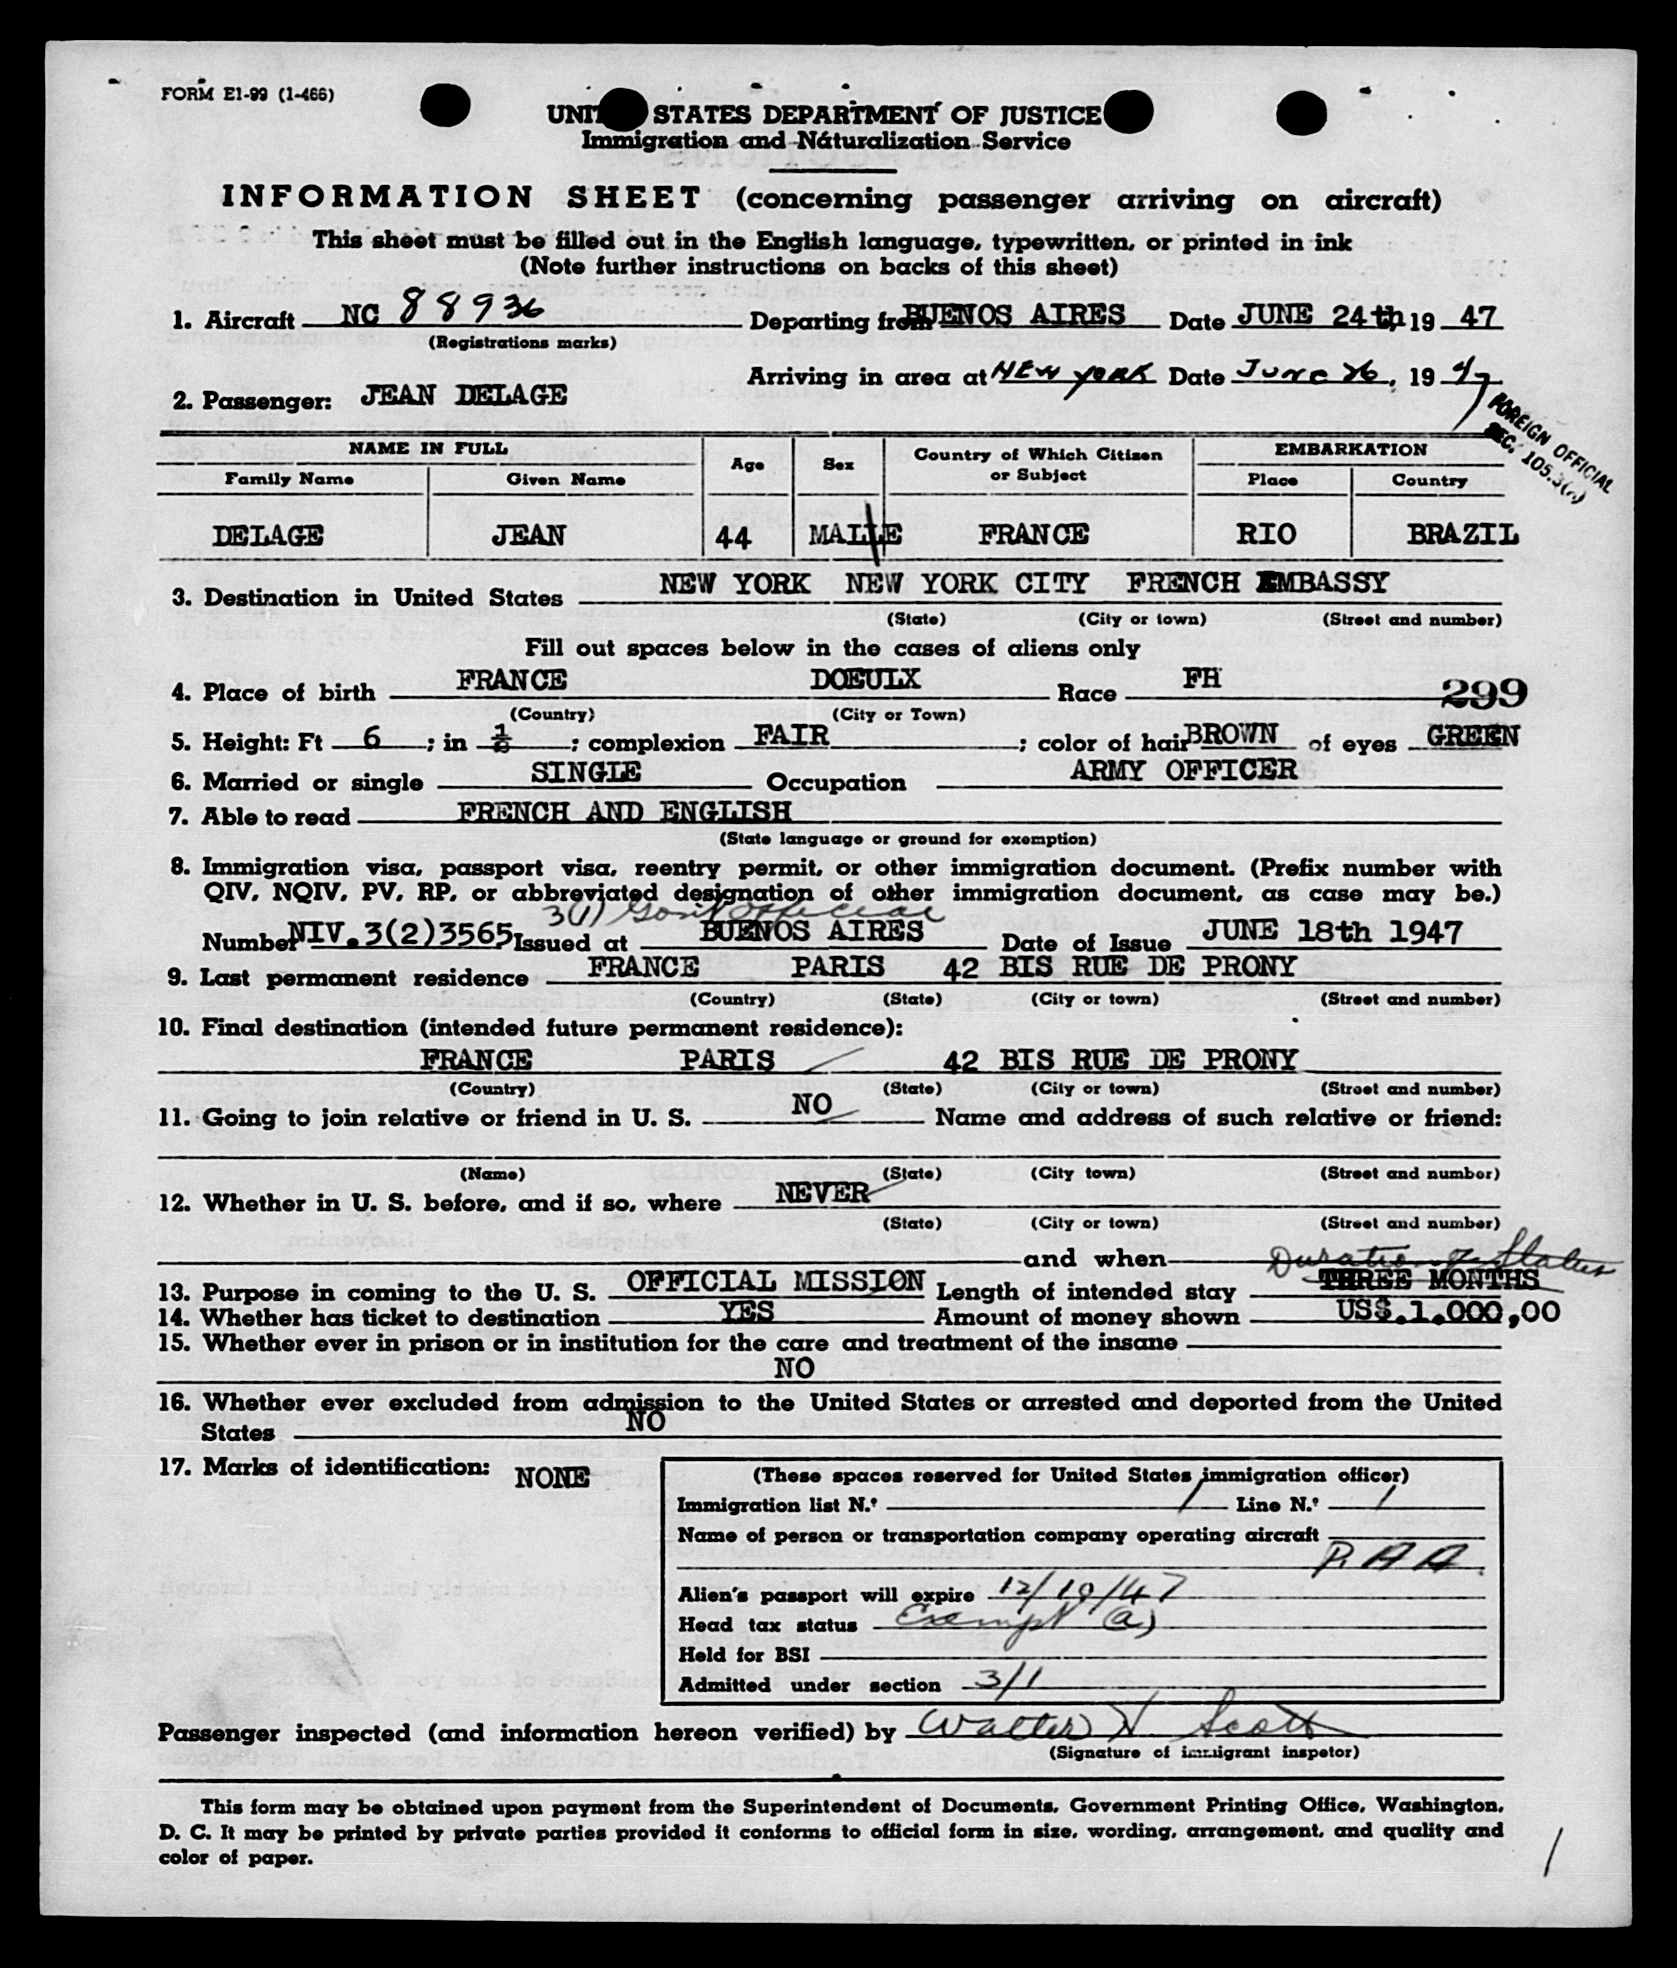 FORM E1-99 (1-466)
UNITED STATES DEPARTMENT OF JUSTICE
Immigration and Naturalization Service
INFORMATION SHEET (concerning passenger arriving on aircraft)
This sheet must be filled out in the English language, typewritten, or printed in ink
(Note further instructions on backs of this sheet)
1. Aircraft NC 88936 Departing from BUENOS AIRES Date JUNE 24th, 19 47
(Registrations marks)
Arriving in area at NEW YORK Date June 26, 19 47
2. Passenger: JEAN DELAGE
FOREIGN OFFICIAL
SEC. 105.3(a)
NAME IN FULL Age Sex Country of Which Citizen or Subject EMBARKATION
Family Name Given Name Place Country
DELAGE JEAN 44 MALLE FRANCE RIO BRAZIL
3. Destination in United States NEW YORK NEW YORK CITY FRENCH EMBASSY
(State) (City or town) (Street and number)
Fill out spaces below in the cases of aliens only
4. Place of birth FRANCE DOEULX Race FH 299
(Country) (City or Town)
5. Height: Ft 6 ; in ; complexion FAIR ; color of hair BROWN of eyes GREEN
6. Married or single SINGLE Occupation ARMY OFFICER
7. Able to read FRENCH AND ENGLISH
(State language or ground for exemption)
8. Immigration visa, passport visa, reentry permit, or other immigration document. (Prefix number with
QIV, NQIV, PV, RP, or abbreviated designation of other immigration document, as case may be.)
3(1) Gov't Official
Number NIV.3(2)3565 Issued at BUENOS AIRES Date of Issue JUNE 18th 1947
9. Last permanent residence FRANCE PARIS 42 BIS RUE DE PRONY
(Country) (State) (City or town) (Street and number)
10. Final destination (intended future permanent residence):
FRANCE PARIS 42 BIS RUE DE PRONY
(Country) (State) (City or town) (Street and number)
11. Going to join relative or friend in U. S. NO Name and address of such relative or friend:
(Name) (State) (City town) (Street and number)
12. Whether in U. S. before, and if so, where NEVER
(State) (City or town) (Street and number)
and when
Duration of Status
13. Purpose in coming to the U. S. OFFICIAL MISSION Length of intended stay THREE MONTHS
14. Whether has ticket to destination YES Amount of money shown US$.1.000,00
15. Whether ever in prison or in institution for the care and treatment of the insane
NO
16. Whether ever excluded from admission to the United States or arrested and deported from the United
States NO
17. Marks of identification: NONE
(These spaces reserved for United States immigration officer)
Immigration list N.º 1 Line N.º 1
Name of person or transportation company operating aircraft
P. A A.
Alien's passport will expire 12/19/47
Head tax status Exempt (a)
Held for BSI
Admitted under section 3/1
Passenger inspected (and information hereon verified) by Walter H. Scott
(Signature of immigrant inspetor)
This form may be obtained upon payment from the Superintendent of Documents, Government Printing Office, Washington,
D. C. It may be printed by private parties provided it conforms to official form in size, wording, arrangement, and quality and
color of paper.
1